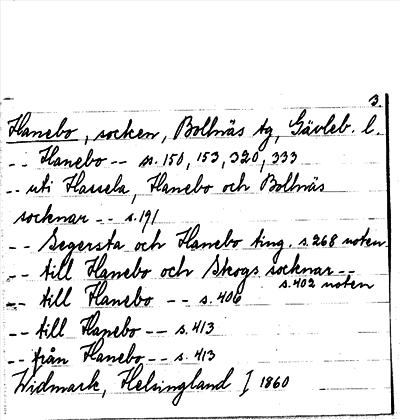 3.
Hanebo, socken, Bollnäs tg, Gävleb. l.
-- Hanebo -- ss. 150, 153, 320, 333
-- uti Hassela, Hanebo och Bollnäs
socknar -- s. 191
-- Segersta och Hanebo ting. s. 268 noten
-- till Hanebo och Skogs socknar --
s. 402 noten
-- till Hanebo -- s. 406
-- till Hanebo -- s. 413
-- från Hanebo -- s. 413
Widmark, Helsingland I 1860